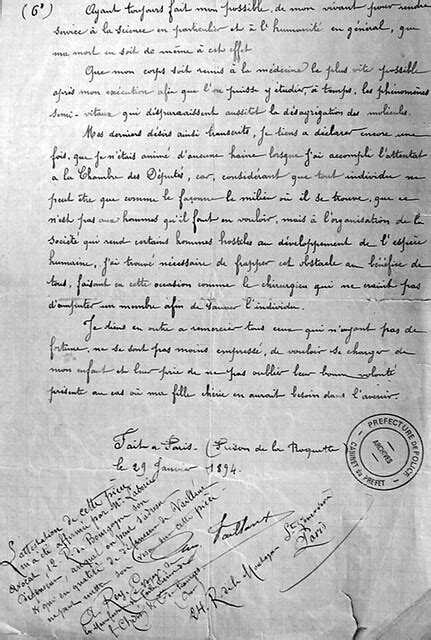 (6º) Ayant toujours fait mon possible, de mon vivant pour rendre
service à la science en particulier et à l'humanité en général, que
ma mort en soit de même à cet effet.
Que mon corps soit remis à la médecine le plus vite possible
après mon exécution afin que l'on puisse y étudier, à temps, les phénomènes
semi-vitaux qui disparaissent aussitôt la désagrégation des molécules.
Mes derniers désirs ainsi transcrits, je tiens à déclarer encore une
fois, que je n'étais animé d'aucune haine lorsque j'ai accompli l'attentat
à la Chambre des Députés, car, considérant que tout individu ne
peut être que comme le façonne le milieu où il se trouve, que ce
n'est pas aux hommes qu'il faut en vouloir, mais à l'organisation de la
Société qui rend certains hommes hostiles au développement de l'espèce
humaine, j'ai trouvé nécessaire de frapper cet obstacle au bénéfice de
tous, faisant en cette occasion comme le chirurgien qui ne craint pas
d'amputer un membre afin de sauver l'individu.
Je tiens en outre à remercier tous ceux qui n'ayant pas de
fortune, ne se sont pas moins empressé, de vouloir se charger de
mon enfant et leur prie de ne pas oublier leur bonne volonté
présente au cas où ma fille chérie en aurait besoin dans l'avenir.
Fait à Paris - (Prison de la Roquette)
le 29 Janvier 1894.
Vaillant
PREFECTURE DE POLICE
ARCHIVES
CABINET DU PREFET
L'attestation de cette pièce
m'a été affirmé par Mr Labori
avocat 12 R. de Bourgogne son
défenseur,
qualité de défenseur de Vaillant
24, R. de la Montagne Ste Geneviève
Paris